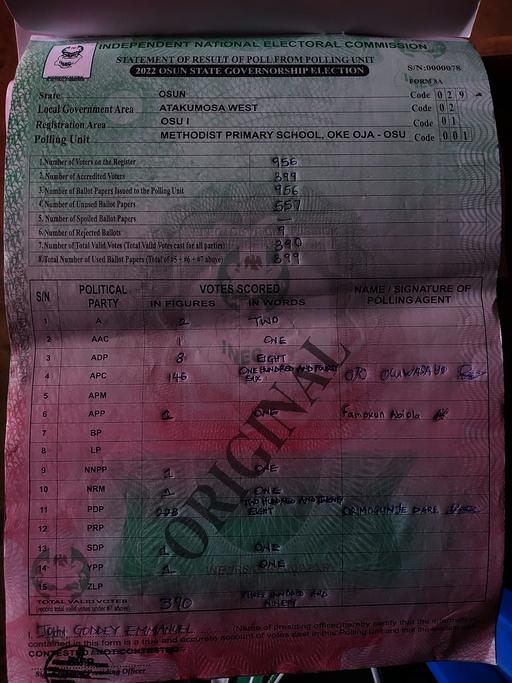 INDEPENDENT NATIONAL ELECTORAL COMMISSION
STATEMENT OF RESULT OF POLL FROM POLLING UNIT
2022 OSUN STATE GOVERNORSHIP ELECTION
S/N:0000078
FORM 8A
State OSUN Code 0 2 9
Local Government Area ATAKUMOSA WEST Code 0 2
Registration Area OSU I Code 0 1
Polling Unit METHODIST PRIMARY SCHOOL, OKE OJA - OSU Code 0 0 1
1.Number of Voters on the Register 956
2.Number of Accredited Voters 399
3.Number of Ballot Papers Issued to the Polling Unit 956
4.Number of Unused Ballot Papers 557
5.Number of Spoiled Ballot Papers —
6.Number of Rejected Ballots 9
7.Number of Total Valid Votes (Total Valid Votes cast for all parties) 390
8.Total Number of Used Ballot Papers (Total of #5 + #6 + #7 above) 399
S/N POLITICAL PARTY VOTES SCORED IN FIGURES IN WORDS NAME / SIGNATURE OF POLLING AGENT
1 A 2 TWO
2 AAC 1 ONE
3 ADP 8 EIGHT
4 APC 146 ONE HUNDRED AND FOURTY SIX OJO
5 APM
6 APP 1 ONE Famokun Abiola
7 BP
8 LP
9 NNPP 1 ONE
10 NRM 1 ONE
11 PDP 228 TWO HUNDRED AND TWENTY EIGHT ORIMOGUNJE DARE
12 PRP
13 SDP 1 ONE
14 YPP 1 ONE
15 ZLP
TOTAL VALID VOTES 390 THREE HUNDRED AND NINETY
(record total valid votes under #7 above)
ORIGINAL
I, JOHN GODDEY EMMANUEL (Name of presiding officer)hereby certify that the
contained in this form is a true and accurate account of votes cast in this Polling Unit and that the
CONTESTED / NOT CONTESTED
Presiding Officer